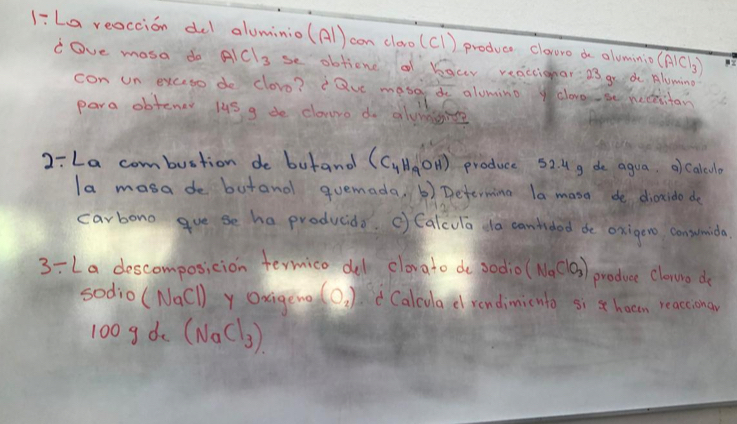 1-. La reacción del aluminio (Al) con cloro (Cl) produce cloruro de aluminio (AlCl3)
¿Que masa de AlCl3 se obtiene al hacer reaccionar 23 gr de Alumino
con un exceso de cloro? ¿Que masa de alumino y cloro se necesitan
para obtener 145 g de cloruro de aluminio?
2-. La combustion de butanol (C4H9OH) produce 52.4 g de agua. a) Calcula
la masa de butanol quemada. b) Determina la masa de dioxido de
carbono que se ha producido. c) Calcula la cantidad de oxigeno consumida.
3-. La descomposición termica del clorato de sodio (NaClO3) produce cloruro de
sodio (NaCl) y oxigeno (O2). ¿Calcula el rendimiento si se hacen reaccionar
100 g de (NaCl3).